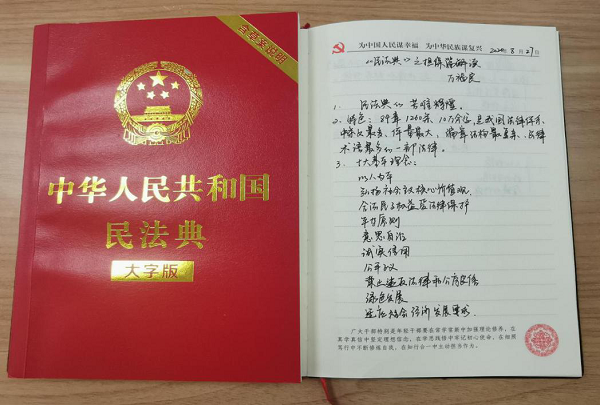 含草案说明
中华人民共和国
民法典
大字版
为中国人民谋幸福 为中华民族谋复兴
2020年8月27日
《民法典》之担保篇解读
万福良
1. 民法典的
2. 特色：84章1260条，10万余字，是我国法律体系
中条文最多、体量最大、编章结构最复杂、法律
术语最多的一部法律。
3. 十大基本理念：
以人为本
弘扬社会主义核心价值观
合法民事权益受法律保护
平等原则
意思自治
诚实信用
公平正义
禁止违反法律和公序良俗
绿色发展
适应社会经济发展要求
广大干部特别是年轻干部要在常学常新中加强理论修养，在
真学真信中坚定理想信念，在学思践悟中牢记初心使命，在细照
笃行中不断修炼自我，在知行合一中主动担当作为。